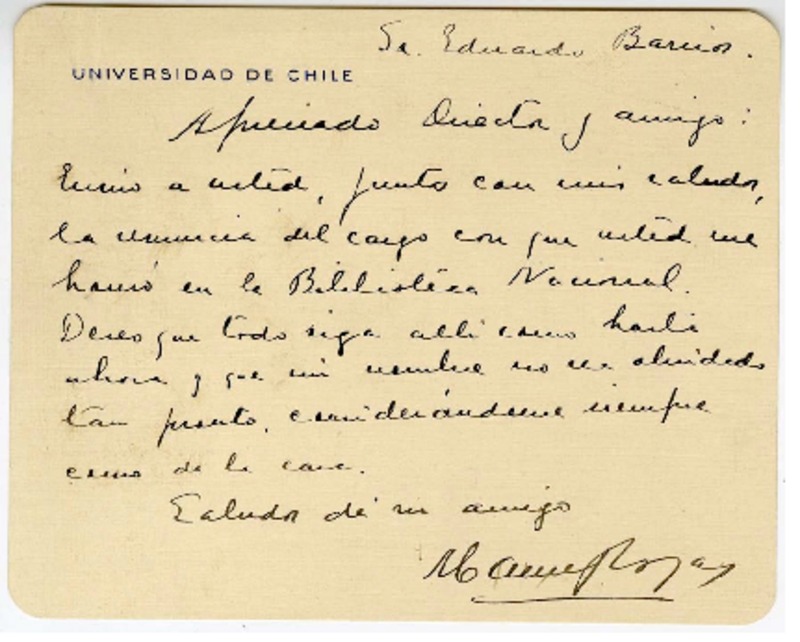 Sr. Eduardo Barrios.
UNIVERSIDAD DE CHILE
Apreciado Director y amigo:
Envío a usted, junto con mis saludos,
la renuncia del cargo con que usted me
honró en la Biblioteca Nacional.
Deseo que todo siga allí como hasta
ahora y que mi nombre no sea olvidado
tan pronto, considerándome siempre
como de la casa.
Saludos de su amigo
Manuel Rojas